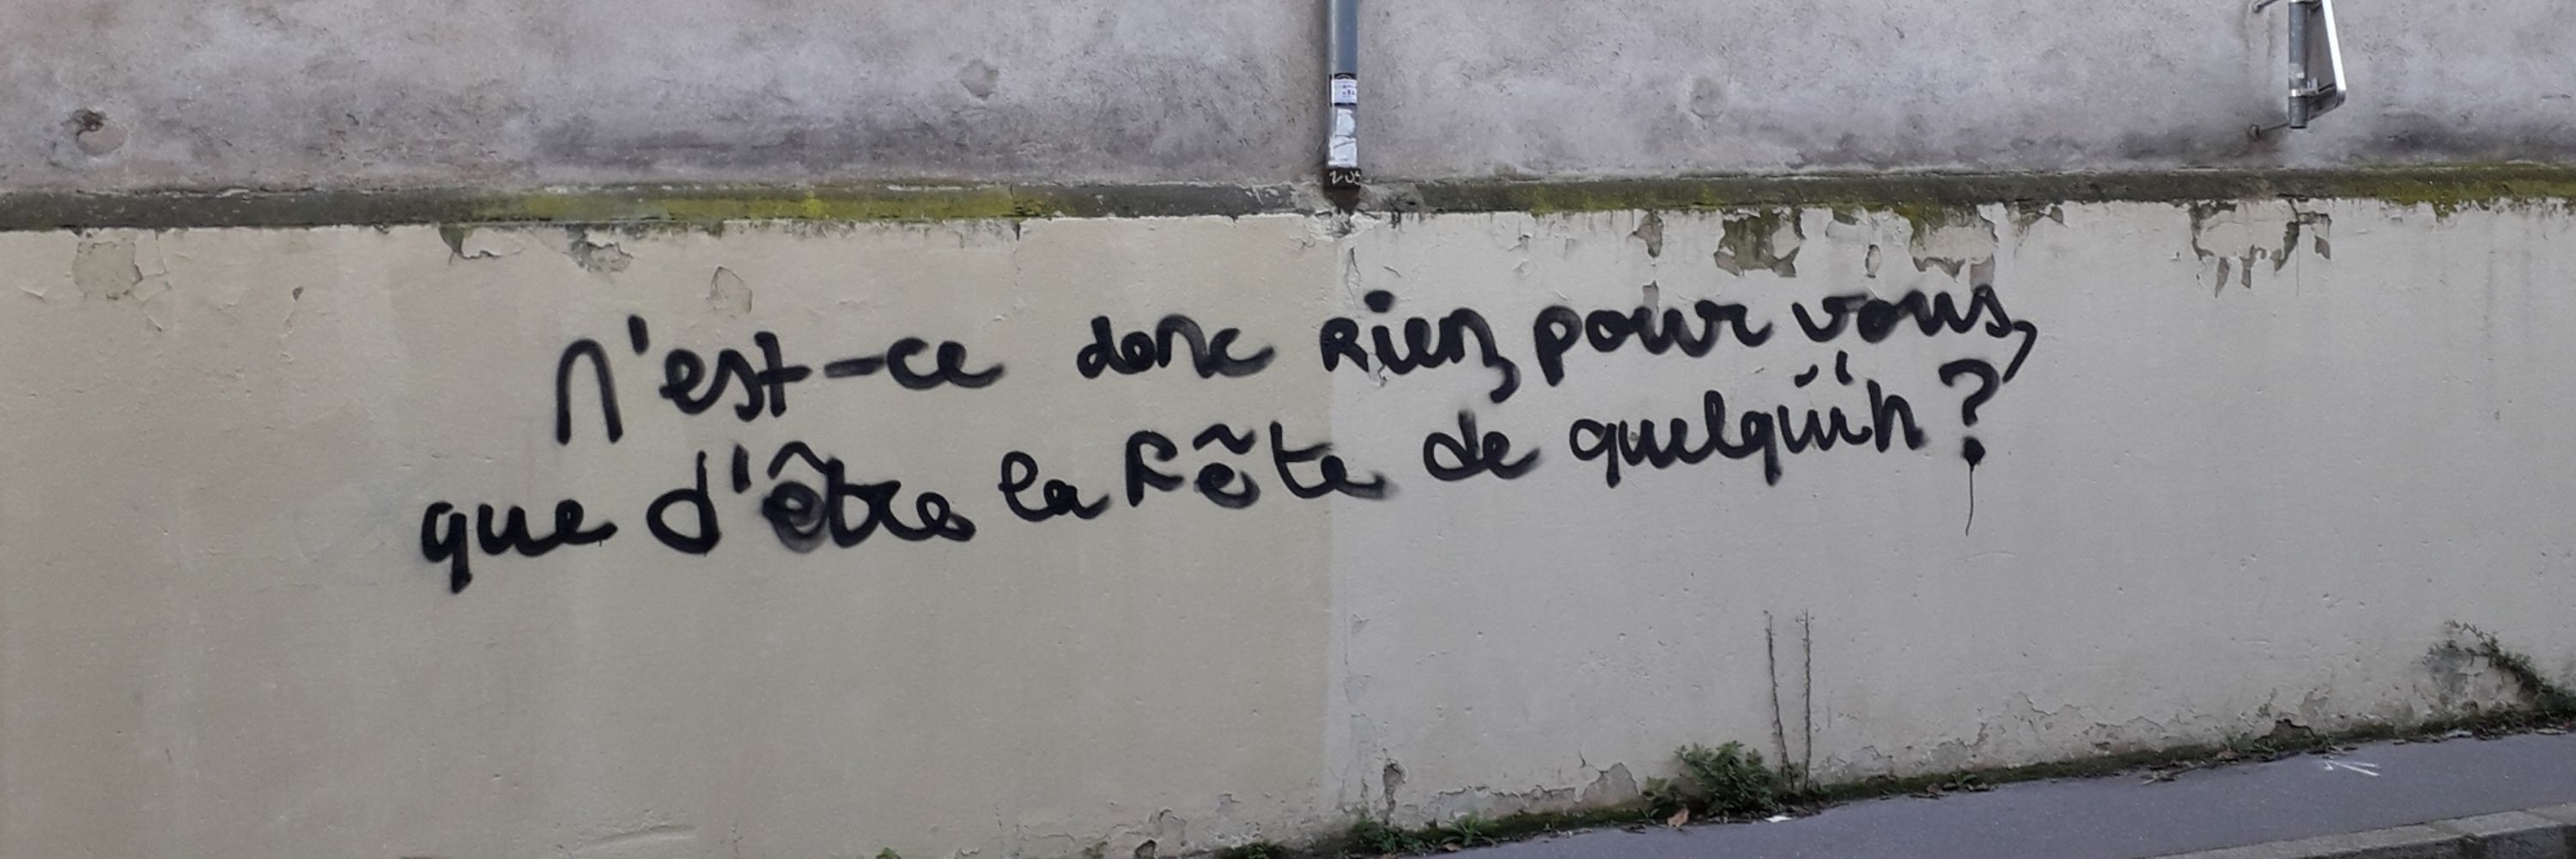 n'est-ce donc Rien, pour vous,
que d'être la fête de quelqu'un ?